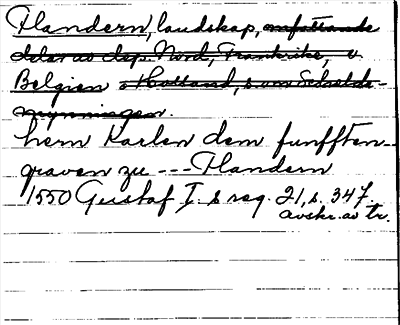 Flandern, landskap, omfattande
delar av dep. Nord, Frankrike, o
Belgien o Holland, s om Schelde-
mynningen.
hern Karlen dem funfften---
graven zu --- Flandern
1550 Gustaf I:s reg. 21, s. 347.
avskr. av tr.